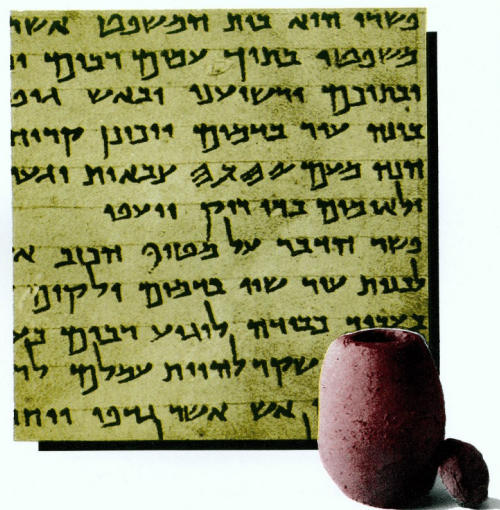 פשרו הוא בית המשפט אשר
משפטו בתוך עמים רבים ו
ובתוכם ירשיענו ובאש גופ
בונה עיר בדמים ויכונן קריה
הנה מעם 𐤉𐤄𐤅𐤄 צבאות יגעו
ולאומים בדי ריק ייעפו
פשר הדבר על מטיף הכזב א
לבנות עיר שוו בדמים ולקים
בעבור כבודה לוגיע רבים בע
שקר להיות עמלם לר
אש אשר גדפו ויחר